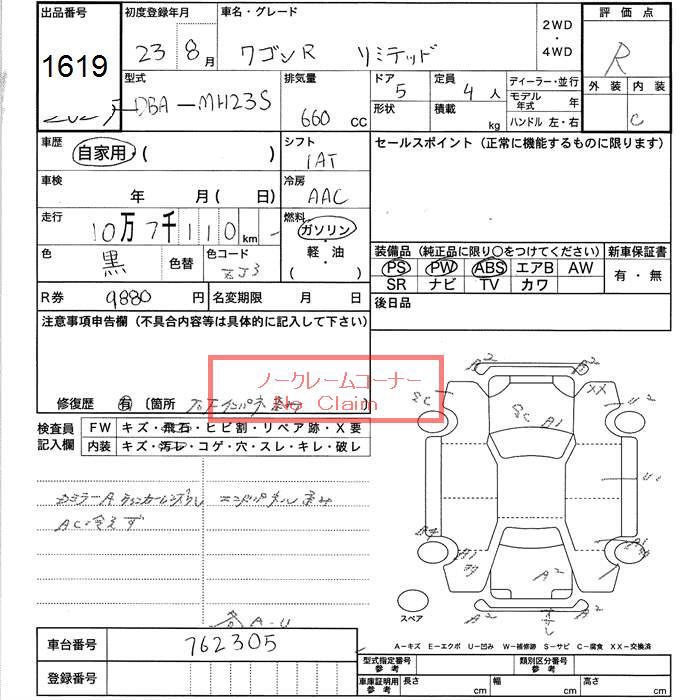 出品番号 初度登録年月 車名・グレード 2WD・4WD 評価点
1619 23 8月 ワゴンR リミテッド R
型式 排気量 ドア 定員 ディーラー・並行 外装 内装
DBA-MH23S 660 CC 5 4人 モデル年式 年 C
形状 積載 kg ハンドル 左・右
車歴 自家用・( ) シフト セールスポイント (正常に機能するものに限ります)
1AT
車検 年 月 (日) 冷房
AAC
走行 10万7千110 km 燃料
ガソリン・軽・油 ( )
色 黒 色替 色コード ZJ3
装備品 (純正品に限り○をつけてください) 新車保証書
PS PW ABS エアB AW 有・無
SR ナビ TV カワ
R券 9880円 名変期限 月 日 後日品
注意事項申告欄 (不具合内容等は具体的に記入して下さい)
ノークレームコーナー
No Claim
修復歴 有 〔箇所
検査員記入欄 FW キズ・飛石・ヒビ割・リペア跡・X要
内装 キズ・汚レ・コゲ・穴・スレ・キレ・破レ
A2 A2
XX
A1
U1
AC冷えず
A1
A2
A2 A2
スペア
A-U
車台番号 762305
A-キズ E-エクボ U-凹み W-補修跡 S-サビ C-腐食 XX-交換済
登録番号
型式指定番号 参考 類別区分番号 参考
車庫証明用 参考 長さ cm 幅 cm 高さ cm